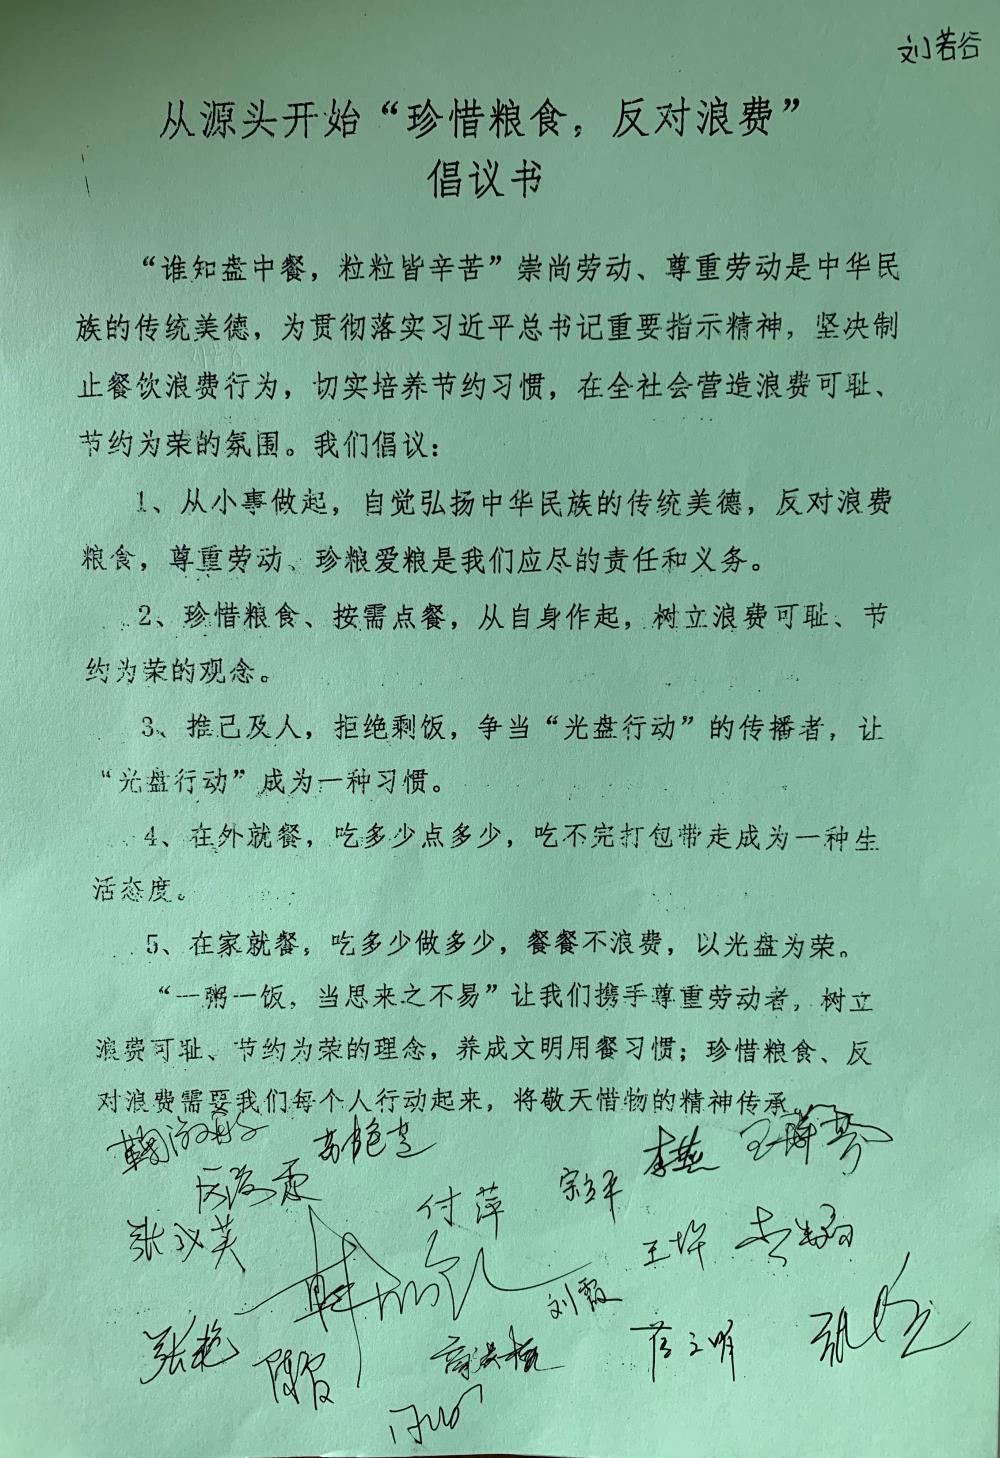 刘若谷
从源头开始“珍惜粮食，反对浪费”
倡议书
“谁知盘中餐，粒粒皆辛苦”崇尚劳动、尊重劳动是中华民
族的传统美德，为贯彻落实习近平总书记重要指示精神，坚决制
止餐饮浪费行为，切实培养节约习惯，在全社会营造浪费可耻、
节约为荣的氛围。我们倡议：
1、从小事做起，自觉弘扬中华民族的传统美德，反对浪费
粮食，尊重劳动、珍粮爱粮是我们应尽的责任和义务。
2、珍惜粮食、按需点餐，从自身作起，树立浪费可耻、节
约为荣的观念。
3、推己及人，拒绝剩饭，争当“光盘行动”的传播者，让
“光盘行动”成为一种习惯。
4、在外就餐，吃多少点多少，吃不完打包带走成为一种生
活态度。
5、在家就餐，吃多少做多少，餐餐不浪费，以光盘为荣。
“一粥一饭，当思来之不易”让我们携手尊重劳动者，树立
浪费可耻、节约为荣的理念，养成文明用餐习惯；珍惜粮食、反
对浪费需要我们每个人行动起来，将敬天惜物的精神传承。
李燕
付萍 宗立平
刘霞
张艳